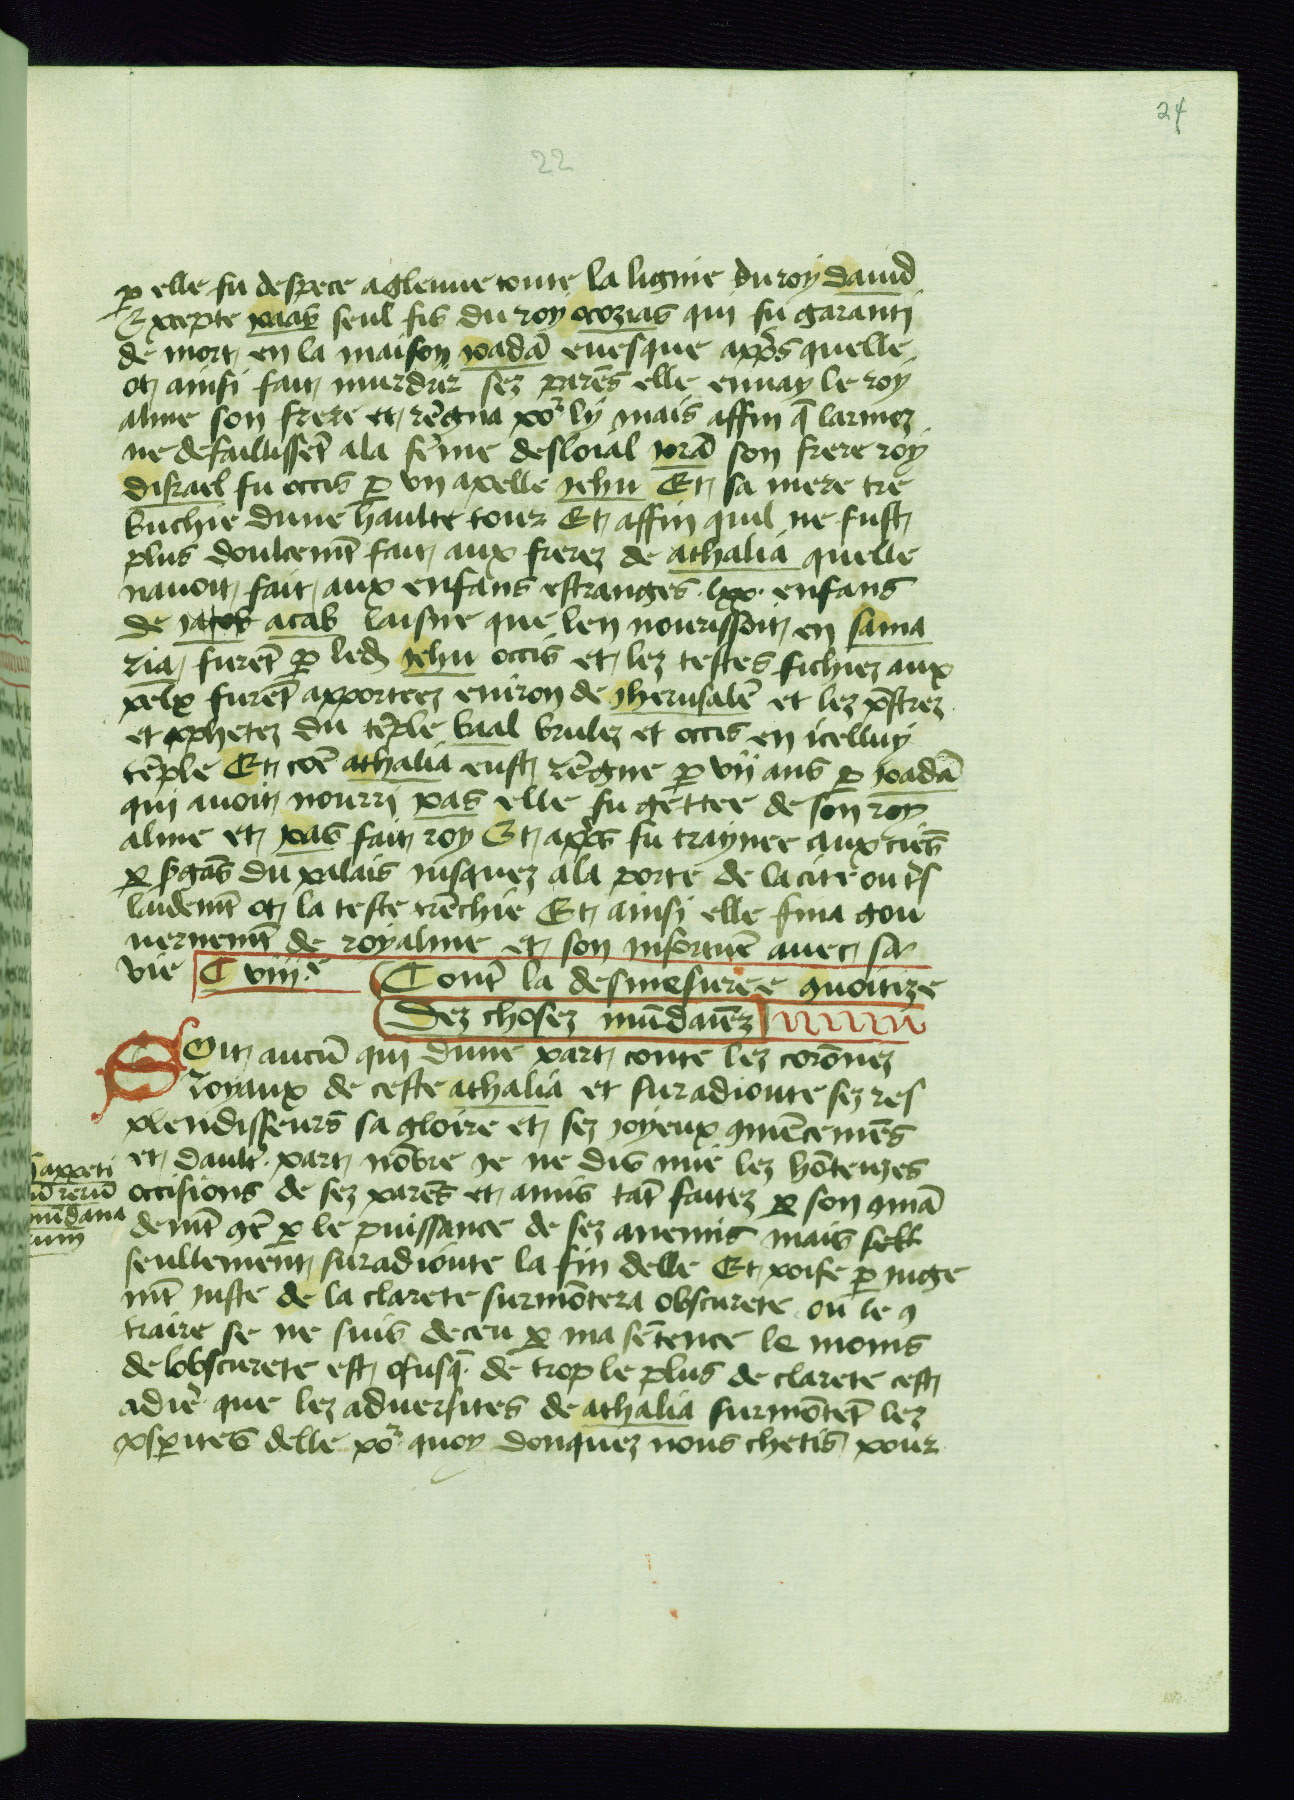 24
22
p elle fu despece a glenne toute la lignie du roy dauid
Excepte yoas seul fis du roy ocozias qui fu garanti
de mort en la maison yoadā euesque apps quelle
ot ainsi fait murdrir sez parēs elle enuay le roy
alme son frere et rēgna po ly mais affin q̄ larmez
ne defaillissēt a la fēme desloial yorā son frere roy
disrael fu occis p vn apelle yehu Et sa mere tre
buchie dune haulte tour Et affin quil ne fust
plus doulcemt fait aux frerez de athalia quelle
nauoit fait aux enfans estranges lxx enfans
de acab laisne que len nourissoit en sama
ria furēt p led yehu occis et lez testes fichiez aux
pelx furēt apportees enuiron de jherusalē et lez pstrez
et pphetez du tēple baal brulez et occis en icelluy
tēple Et cōe athalia eust rēgne p vij ans p yoadā
qui auoit nourri yoas elle fu gettee de son roy
alme et yoas fait roy Et aps fu traynee aux ciēs
p sgās du palais jusquez a la porte de la cite ou
ludemt ot la teste trēchie Et ainsi elle fina gou
uernemt de royalme et son infortune auec sa
vie C viij.e Contē la desmesuree quoitize
Dez chosez mūdaiēz
Soit aucū qui dune part conte lez corōnez
royaux de ceste athalia et suradioute sez res
plendisseurs sa gloire et sez joyeux qmēcemēs
et daultr part nōbre je ne dis mie lez hōteuzes
occisions de sez parēs et amis tāt faitez p son qmā
demt qē p le puissance de sez anemis mais
seullement suradioute la fin delle Et poise p juge
mt juste de la clarete surmōtera obscurete ou le q
traire se ne suis deceu p ma sētence le moins
de lobscurete est ofusq de trop le plus de clarete cest
adire que lez aduersites de athalia surmōtēt lez
psperites delle po quoy donquez nous chetis pour
appeti
rerū
mūdana
rum